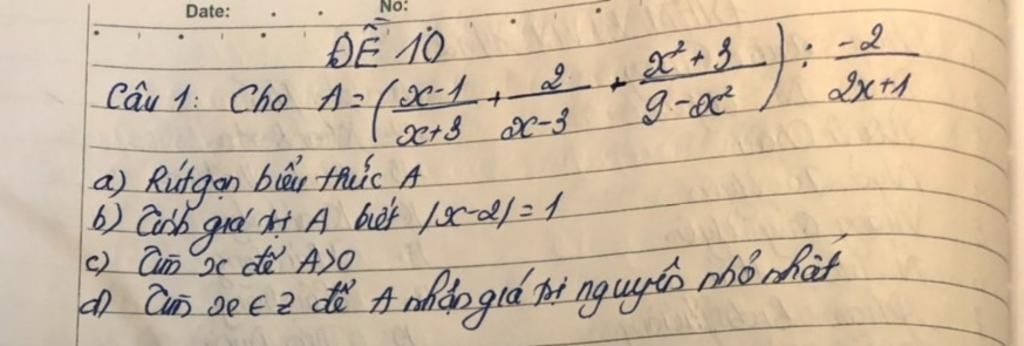 Date: No:
ĐỀ 10
Câu 1: Cho A = ( (x-1)/(x+3) + 2/(x-3) + (x²+3)/(9-x²) ) : (-2)/(2x+1)
a) Rút gọn biểu thức A
b) Tính giá trị A biết |x-2| = 1
c) Tìm x để A>0
d) Tìm x ∈ Z để A nhận giá trị nguyên nhỏ nhất